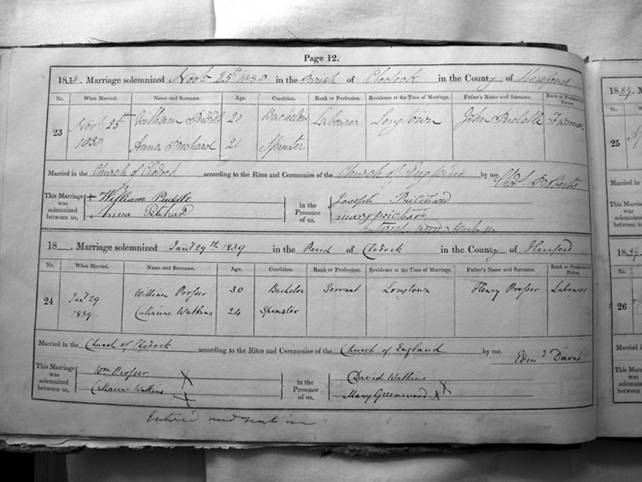 Page 12.
1838. Marriage solemnized Novbr 25th 1838 in the Parish of Clodock in the County of Hereford
No. When Married. Name and Surname. Age. Condition. Rank or Profession. Residence at the Time of Marriage. Father's Name and Surname. Rank or Profession of Father.
23 Novbr 25th 1838 William 20 Bachelor Labourer Longtown John Farmer
Anna Prichard 21 Spinster
Married in the Church of Clodock according to the Rites and Ceremonies of the Church of England by me,
This Marriage was solemnized between us, William in the Presence of us, Joseph Pritchard
Anna Mary Prichard
18 . Marriage solemnized Jany 29th 1839 in the Parish of Clodock in the County of Hereford
No. When Married. Name and Surname. Age. Condition. Rank or Profession. Residence at the Time of Marriage. Father's Name and Surname. Rank or Profession of Father.
24 Jany 29 1839. William Prosser 30 Bachelor Servant Longtown Henry Prosser Labourer
Catharine Watkins 24 Spinster
Married in the Church of Clodock according to the Rites and Ceremonies of the Church of England by me, Edmd Davis
This Marriage was solemnized between us, Wm Prosser X in the Presence of us, David Watkins X
Catharine Watkins X Mary Greenwood X
Entered and sent in
1839.
No.
25
1839.
No.
26